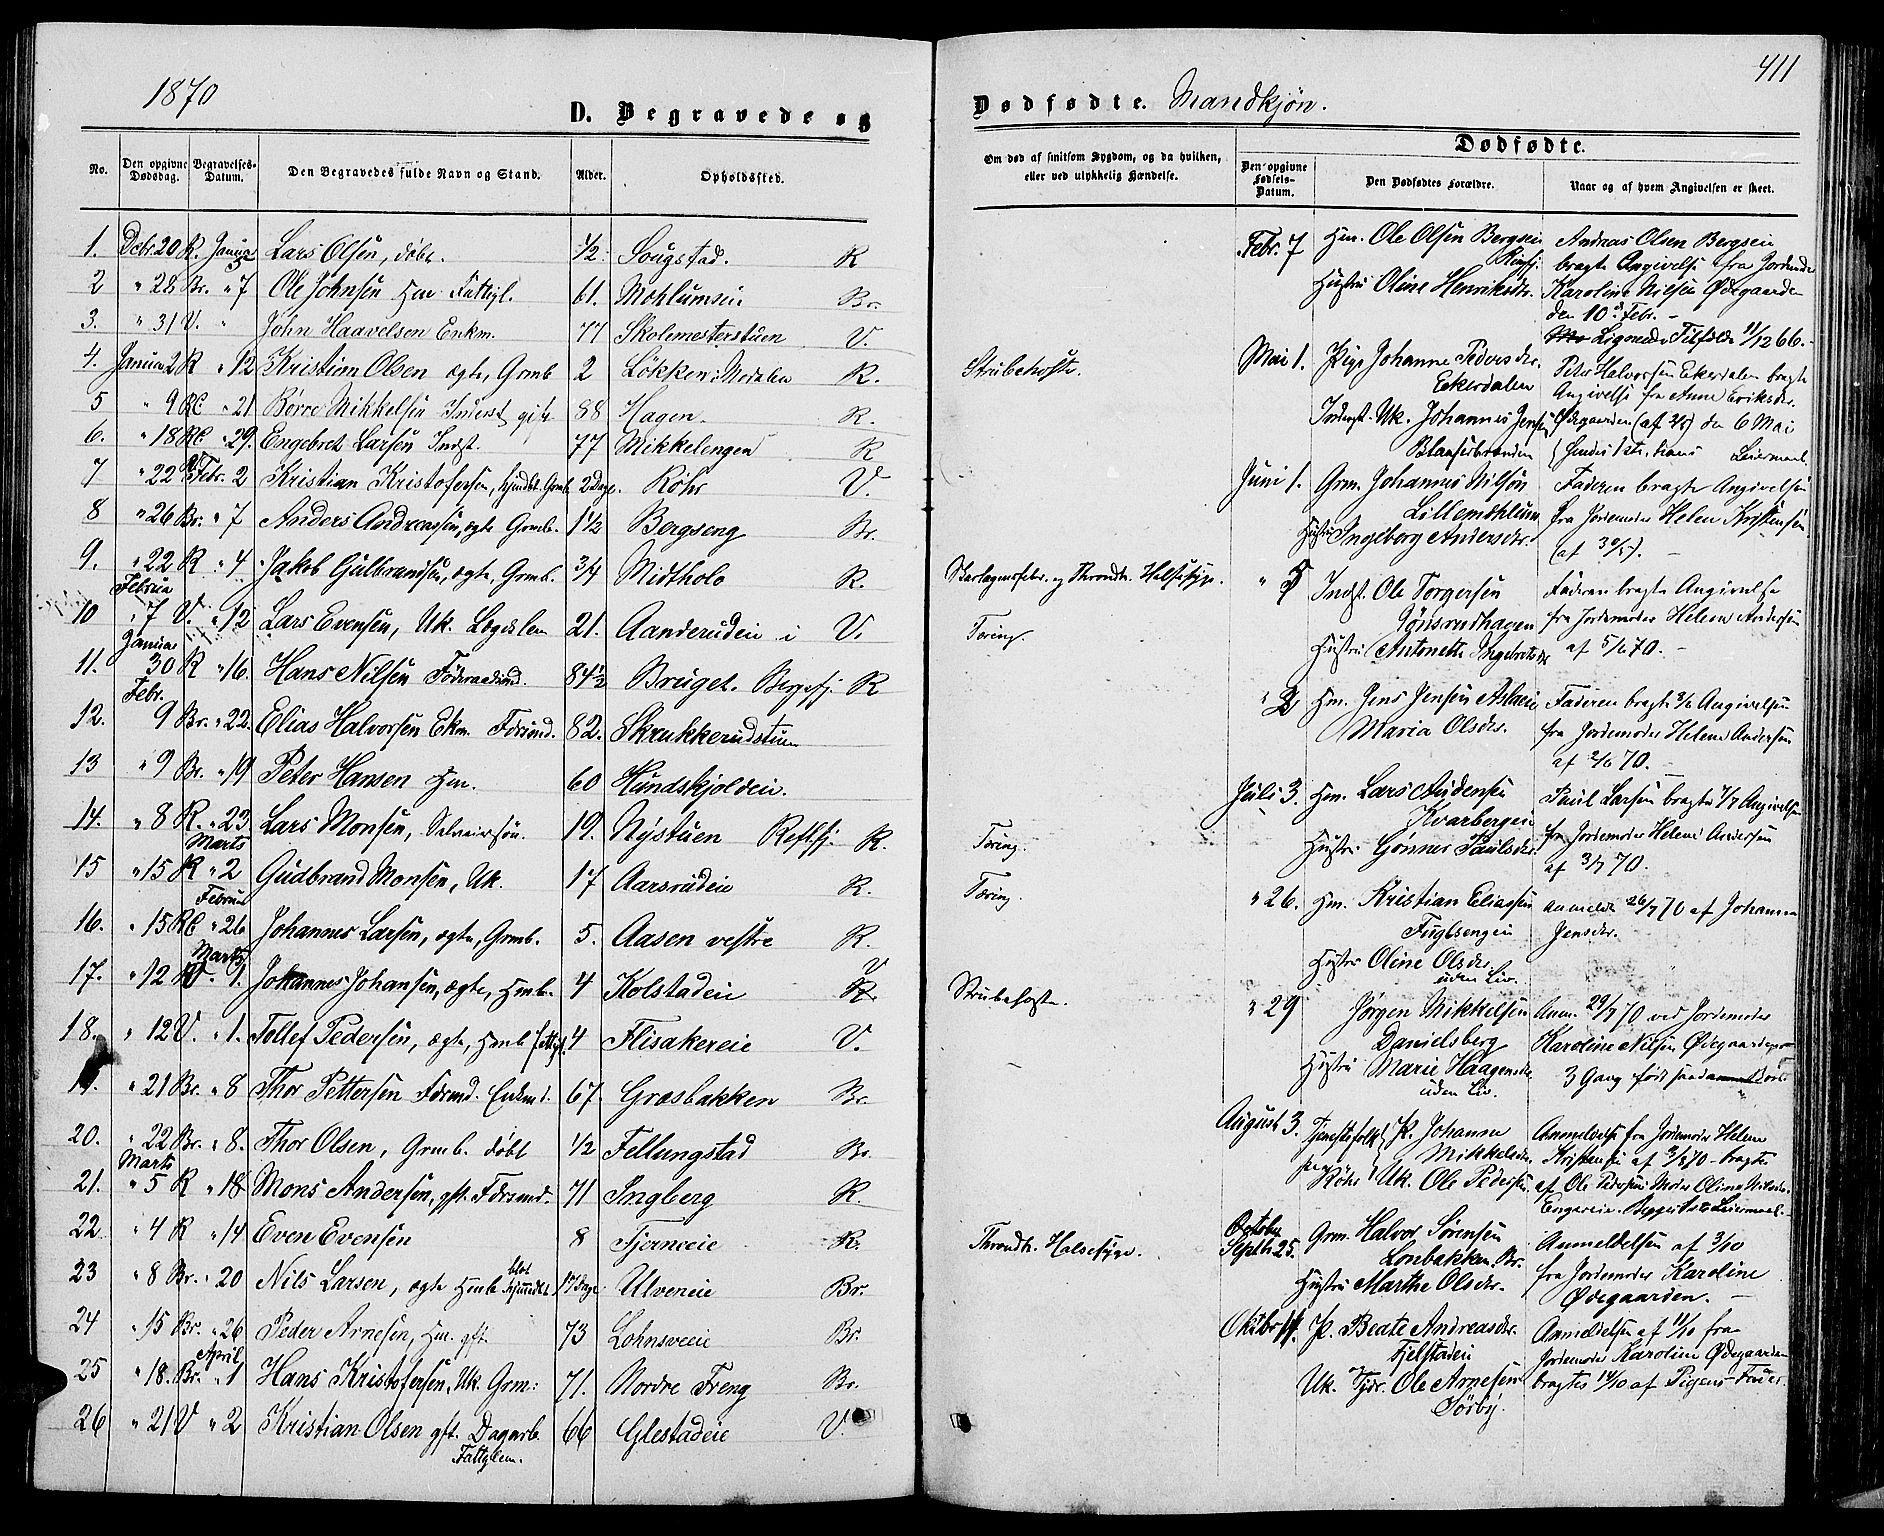 1870
D. Begravede og
No.
Den opgivne Dødsdag.
Begravelses-Datum.
Den Begravedes fulde Navn og Stand.
Alder.
Opholdssted.
1. Dcbr. 20 R. Januar 5 Lars Olsen, døbt. 1/2 Sougstad. R
2 " 28 Br. " 7 Ole Johnsen Hm Fattigl. 61. Mohlumseie Br.
3. " 31 V. " John Haavelsen Enkm. 77 Skolmesterstuen V.
4. Januar 2 R " 12 Kristian Olsen ægte, Grmb 2 Løkken i Nordalen R.
5 " 9 RC " 21 Børre Mikkelsen Inderst gift 88 Hagen. R.
6. " 18 RC " 29. Engebret Larsen Indst. 77 Mikkelengen R
7 " 22 Febr. 2 Kristian Kristofersen, hjmdbt. Grmb. 2 Dage. Røhr V.
8 " 26 Br. " 7 Anders Andreassen, ægte Grmb. 1 1/2 Bergseng Br.
9. " 22 R " 4 Jakob Gulbrandsen, ægte, Grmb. 3/4 Midtholo R.
Februar
10 " 7 V. " 12 Lars Evensen, Uk. Lægdslem 21. Aanderudeie i V.
Januar
11. 30 R " 16. Hans Nilsen Føderaadsmd. 84 1/2 Bruget. Bergefj. R
Febr.
12. 9 Br. " 22. Elias Halvorsen Ekm. Førsmd. 82. Skrukkerudstuen
13 " 9 Br. " 19 Peter Hansen Hm. 60 Hundskjoldeie.
14. " 8 R. " 23. Lars Monsen, Selveiersøn. 19. Nystuen Reftfj. R.
Marts
15 " 15 R " 2 Gudbrand Monsen, Uk. 17 Aarsrudeie R.
Februar
16. " 15 RC " 26 Johannes Larsen, ægte, Grmb. 5. Aasen vestre R.
Marts
17. " 12 V. 1. Johannes Johansen, ægte, Hmb. 4 Kolstadeie V
18. " 12 V. " 1. Tollef Pedersen, ægte, Hmb fattigl. 4 Flisakereie V.
19. " 21 Br. " 8 Thor Pettersen Førsmd. Enkmd. 67. Græsbakken Br.
20. " 22 Br. " 8. Thor Olsen, Grmb. døbt 1/2 Fellungstad Br.
Marts
21. " 5 R " 18 Mons Andersen, gft. Førsmd. 71 Ingberg R.
22 " 4 R " 14 Even Evensen 8 Tjerneeie R.
23 " 8 Br. " 20 Nils Larsen, ægte Hmb blot hjmmedbt 17 Dage Ulveneie Br.
24 " 15 Br. " 26 Peder Arnesen, Hm. gft. 73 Lohnsveeie Br.
April
25 " 18. Br. " 1 Hans Kristofersen, Uk. Grm: 71. Nordre Freng Br.
26 " 21 V " 2 Kristian Olsen gft. Dagarb. 66 Glestadeie V.
Fattiglem.
411
Dødfødte. Mandkjøn.
Om død af smitsom Sygdom, og da hvilken, eller ved ulykkelig Hændelse.
Dødfødte.
Den opgivne Fødsels-Datum.
Den Dødfødtes Forældre.
Naar og af hvem Angivelsen er skeet.
Strubehoste.
Skarlagensfebr. og Throndh. Halssyge.
Tæring.
Tæring.
Tæring.
Strubehoste.
Throndh. Halssyge.
Febr. 7 Hm. Ole Olsen Bergseie
Hustru Oline Henriksdr.
Andreas Olsen Bergseie
bragte Angivelse fra Jordmoder
Karoline Nilsen Ødegaarden
den 10de Febr. -
Lignende Tilfælde 11/12 66. -
Mai 1. Pige Johanne Pedersdr.
Ekerdalen
Uk. Johannes Jensen
Blaaserbraaden
Peter Halvorsen Ekerdalen bragte
Angivelse fra Anne Eriksdr.
Ødegaarden (af 2/5) den 6 Mai
(hendes 1ste, hans Leiermaal.
Juni 1. Grm. Johannes Nilsen
Lillemohlum
Hustru Ingeborg Andersdr.
Faderen bragte Angivelsen
fra Jordemoder Helene Kristensen
(af 30/5). -
" 5 Indst. Ole Torgersen
Gönsrudhagen
Hustru Antonette Ingebretsdr
Faderen bragte Angivelse
fra Jordemoder Helene Andersen
af 5/6 70. -
" 2 Hm. Jens Jensen Aslaeie
Maria Olsdr.
Faderen bragte 3/6 Angivelsen
fra Jordemoder Helene Andersen
af 2/6 70. -
Juli 3. Hm. Lars Audensen
Kvarbergeie
Hustru Gønner Paulsdr.
Paul Larsen bragte 4/7 Angivelsen
fra Jordemoder Helene Andersen
af 3/7 70.
" 26. Hm. Kristian Eliassen
Fuglsengeie
Hustru Oline Olsdr.
uden Liv.
Anmeldt 26/7 70 af Johanne
Jensdr.
" 29 Jørgen Mikkelsen
Danielsberg
Hustru Marie Haagensdr
uden Liv.
Anm. 29/7 70 ved Jordemoder
Karoline Nilsen Ødegaarden
3 Gang født saadanne Børn
August 3. Tjenestefolk P. Johanne
Mikkelsdr.
Røhr Uk. Ole Pedersen
Anmeldelse fra Jordemoder Helene
Kristensen af 3/8 70 - bragte
af Ole Pedersens Moder Oline Nilsdr.
Engereie. Begges 1ste Leiermaal. -
Octobr
Septbr 25. Grm. Halvor Sørensen
Lonbakken. Br.
Hustru Marthe Olsdr.
Anmeldelsen af 3/10
fra Jordemoder Karoline
Ødegaarden. -
Oktbr 11. P. Beate Andreasdr.
Fjelstadeie
Uk. Tjdr. Ole Arnesen
Sørby.
Anmeldelsen af 11/10 fra
Jordemoder Karoline Ødegaarden
bragtes 14/10 af Pigens Fader.